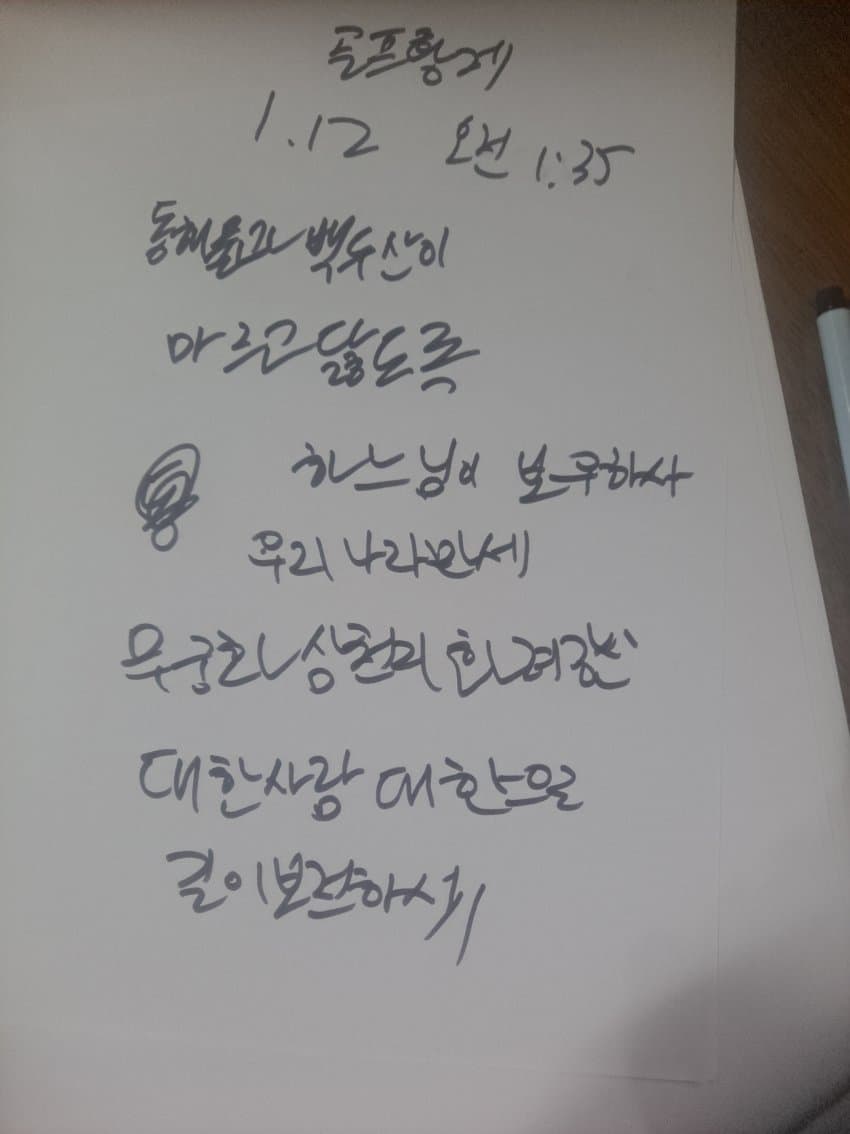 골프황제
1.12 오전 1:35
동해물과 백두산이
마르고 닳도록
하느님이 보우하사
우리나라만세
무궁화 삼천리 화려강산
대한사람 대한으로
길이보전하세